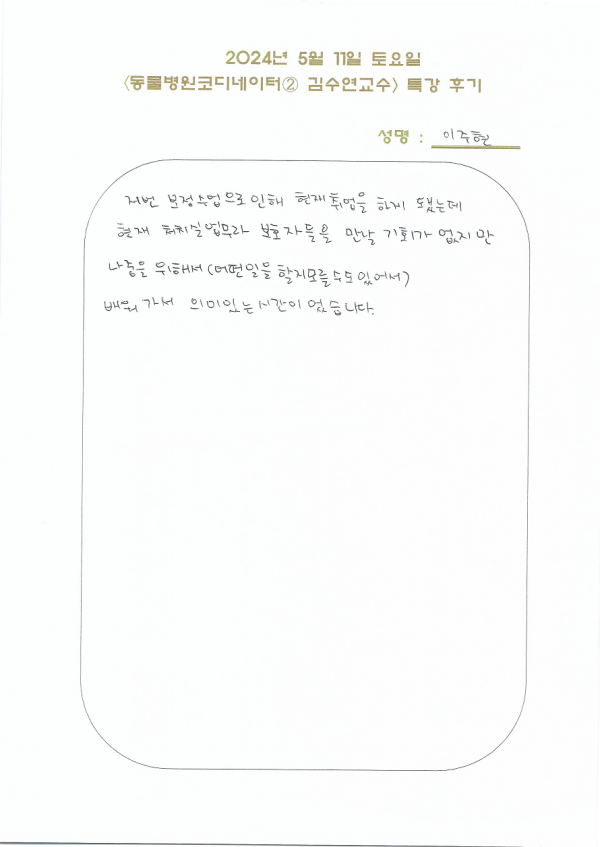 2024년 5월 11일 토요일
<동물병원코디네이터② 김수연교수> 특강 후기
성명 : 이주현
저번 보정수업으로 인해 현재 취업을 하게 되었는데
현재 처치실업무라 보호자들을 만날 기회가 없지만
나중을 위해서 (어떤일을 할지모를수도있어서)
배워가서 의미있는시간이었습니다.